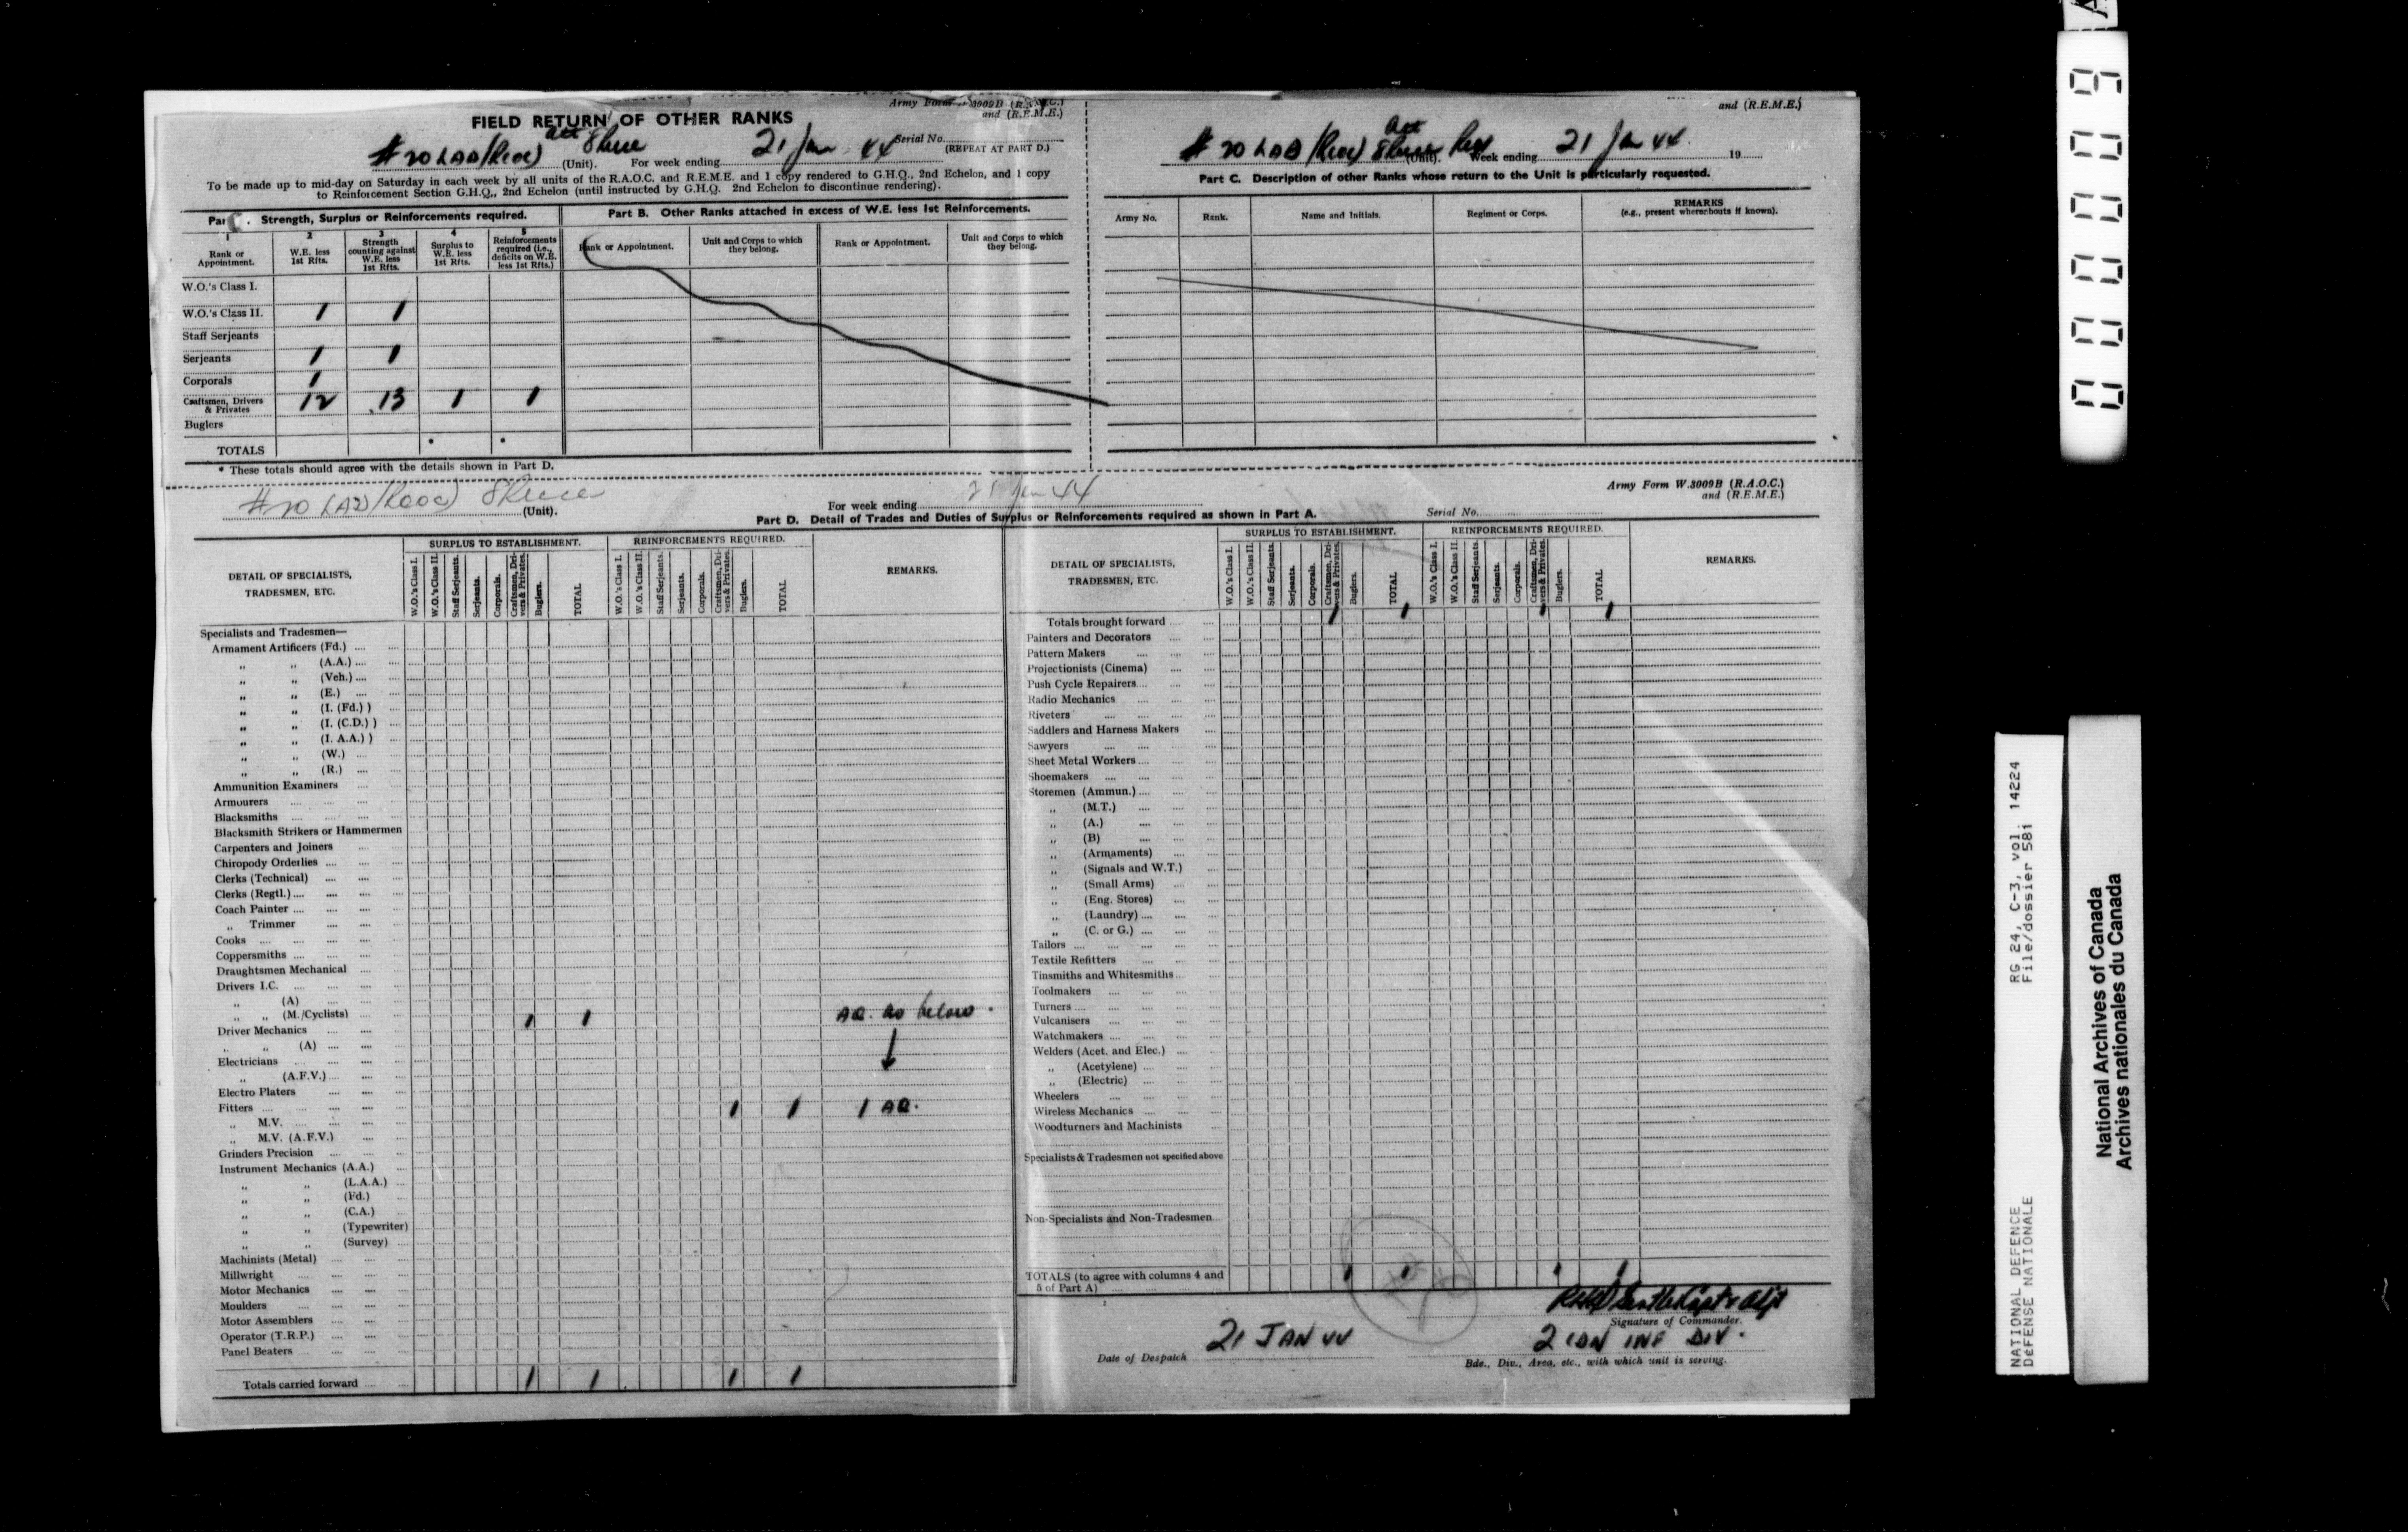 Army Form W.3009B (R.A.O.C.)
and (R.E.M.E.)
FIELD RETURN OF OTHER RANKS
att
(Unit). For week ending 21 Jan 44 Serial No.
(REPEAT AT PART D.)
To be made up to mid-day on Saturday in each week by all units of the R.A.O.C. and R.E.M.E. and 1 copy rendered to G.H.Q., 2nd Echelon, and 1 copy
to Reinforcement Section G.H.Q., 2nd Echelon (until instructed by G.H.Q. 2nd Echelon to discontinue rendering).
Strength, Surplus or Reinforcements required.
1 2 3 4 5
Rank or Appointment. W.E. less 1st Rfts. Strength counting against W.E. less 1st Rfts. Surplus to W.E. less 1st Rfts. Reinforcements required (i.e., deficits on W.E. less 1st Rfts.)
W.O.'s Class I.
W.O.'s Class II. 1 1
Staff Serjeants
Serjeants 1 1
Corporals 1
Craftsmen, Drivers & Privates 12 13 1 1
Buglers
TOTALS * *
* These totals should agree with the details shown in Part D.
Part B. Other Ranks attached in excess of W.E. less 1st Reinforcements.
Rank or Appointment. Unit and Corps to which they belong. Rank or Appointment. Unit and Corps to which they belong.
and (R.E.M.E.)
att
(Unit). Week ending 21 Jan 44 19
Part C. Description of other Ranks whose return to the Unit is particularly requested.
Army No. Rank. Name and Initials. Regiment or Corps. REMARKS (e.g., present whereabouts if known).
(Unit).
For week ending 21 Jan 44
Army Form W.3009B (R.A.O.C.)
and (R.E.M.E.)
Part D. Detail of Trades and Duties of Surplus or Reinforcements required as shown in Part A.
Serial No.
DETAIL OF SPECIALISTS, TRADESMEN, ETC. SURPLUS TO ESTABLISHMENT. REINFORCEMENTS REQUIRED. REMARKS.
W.O.'s Class I. W.O.'s Class II. Staff Serjeants. Serjeants. Corporals. Craftsmen, Drivers & Privates. Buglers. TOTAL W.O.'s Class I. W.O.'s Class II. Staff Serjeants. Serjeants. Corporals. Craftsmen, Drivers & Privates. Buglers. TOTAL
Specialists and Tradesmen—
Armament Artificers (Fd.)
,, ,, (A.A.)
,, ,, (Veh.)
,, ,, (E.)
,, ,, (I. (Fd.) )
,, ,, (I. (C.D.) )
,, ,, (I. A.A.) )
,, ,, (W.)
,, ,, (R.)
Ammunition Examiners
Armourers
Blacksmiths
Blacksmith Strikers or Hammermen
Carpenters and Joiners
Chiropody Orderlies
Clerks (Technical)
Clerks (Regtl.)
Coach Painter
,, Trimmer
Cooks
Coppersmiths
Draughtsmen Mechanical
Drivers I.C.
,, (A)
,, ,, (M./Cyclists) 1 1 as below.
Driver Mechanics
,, ,, (A)
Electricians
,, (A.F.V.)
Electro Platers
Fitters 1 1 1
,, M.V.
,, M.V. (A.F.V.)
Grinders Precision
Instrument Mechanics (A.A.)
,, ,, (L.A.A.)
,, ,, (Fd.)
,, ,, (C.A.)
,, ,, (Typewriter)
,, ,, (Survey)
Machinists (Metal)
Millwright
Motor Mechanics
Moulders
Motor Assemblers
Operator (T.R.P.)
Panel Beaters
Totals carried forward 1 1 1 1
DETAIL OF SPECIALISTS, TRADESMEN, ETC. SURPLUS TO ESTABLISHMENT. REINFORCEMENTS REQUIRED. REMARKS.
W.O.'s Class I. W.O.'s Class II. Staff Serjeants. Serjeants. Corporals. Craftsmen, Drivers & Privates. Buglers. TOTAL W.O.'s Class I. W.O.'s Class II. Staff Serjeants. Serjeants. Corporals. Craftsmen, Drivers & Privates. Buglers. TOTAL
Totals brought forward 1 1 1 1
Painters and Decorators
Pattern Makers
Projectionists (Cinema)
Push Cycle Repairers
Radio Mechanics
Riveters
Saddlers and Harness Makers
Sawyers
Sheet Metal Workers
Shoemakers
Storemen (Ammun.)
,, (M.T.)
,, (A.)
,, (B)
,, (Armaments)
,, (Signals and W.T.)
,, (Small Arms)
,, (Eng. Stores)
,, (Laundry)
,, (C. or G.)
Tailors
Textile Refitters
Tinsmiths and Whitesmiths
Toolmakers
Turners
Vulcanisers
Watchmakers
Welders (Acet. and Elec.)
,, (Acetylene)
,, (Electric)
Wheelers
Wireless Mechanics
Woodturners and Machinists
Specialists & Tradesmen not specified above
Non-Specialists and Non-Tradesmen
TOTALS (to agree with columns 4 and 5 of Part A) 1 1 1 1
Signature of Commander.
Date of Despatch 21 JAN 44
2 CDN INF DIV.
Bde., Div., Area, etc., with which unit is serving.
00009
NATIONAL DEFENCE RG 24, C-3, vol. 14224
DéFENSE NATIONALE File/dossier 581
National Archives of Canada
Archives nationales du Canada